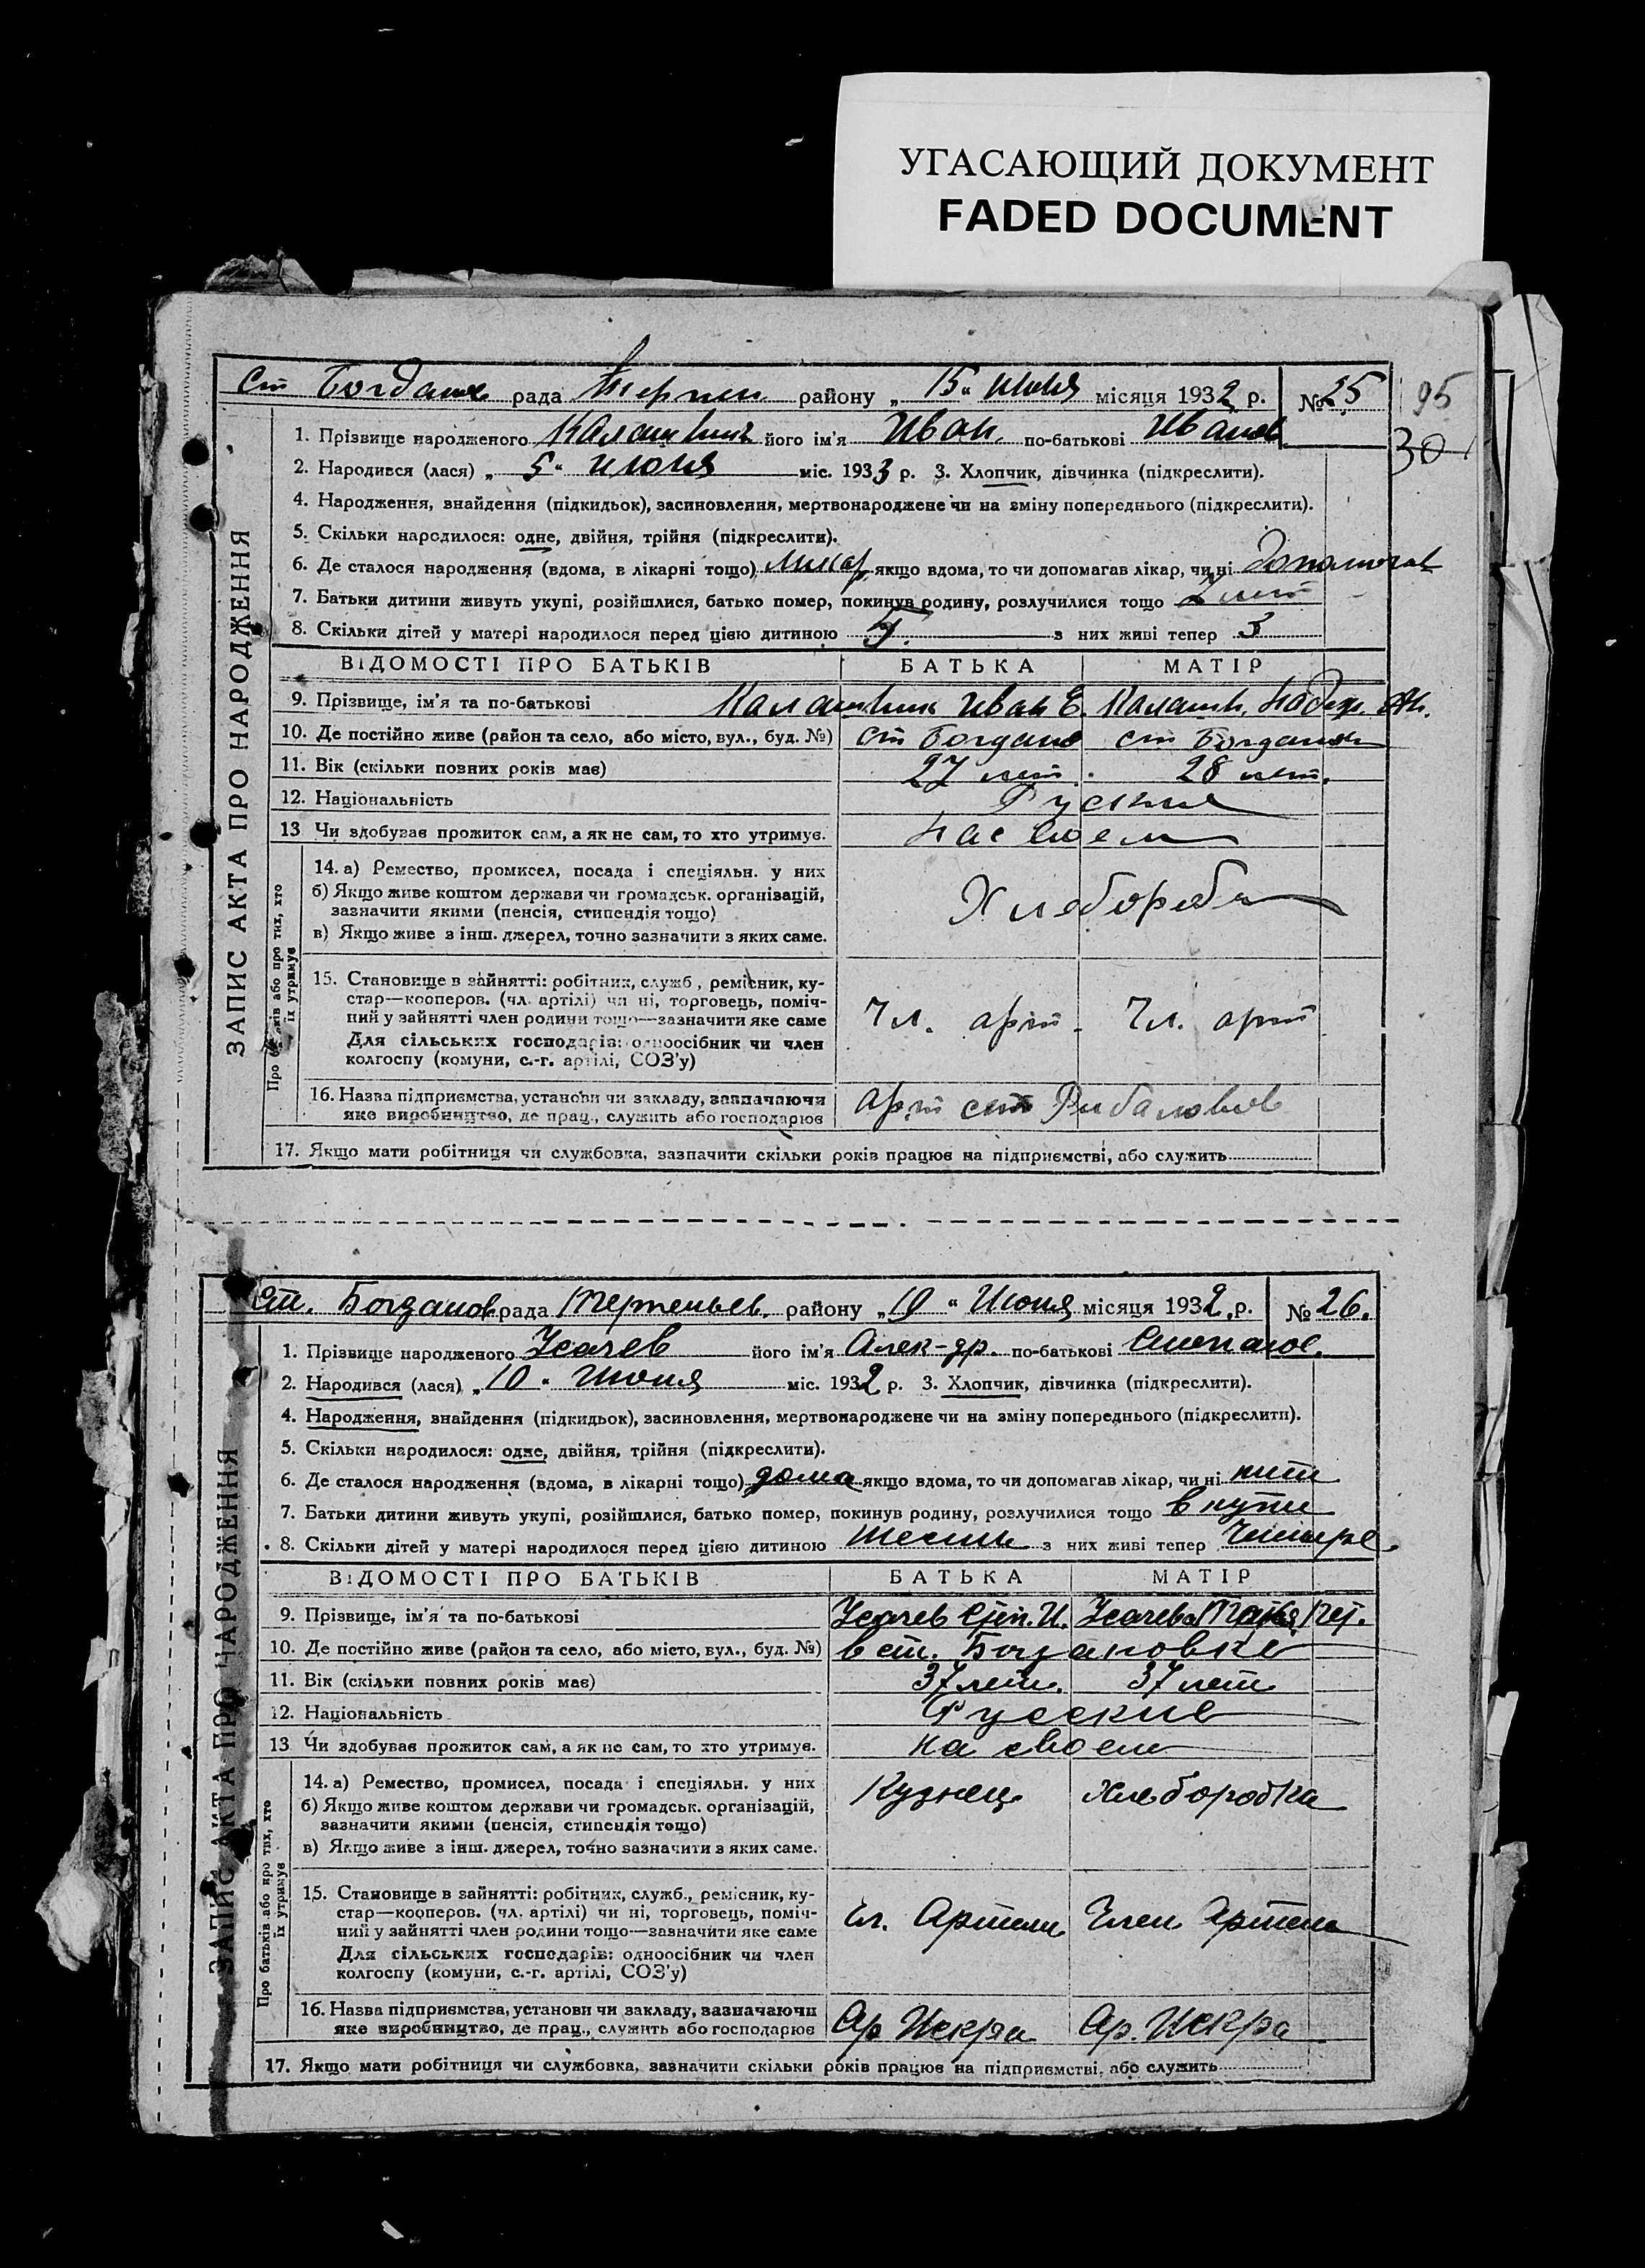 УГАСАЮЩИЙ ДОКУМЕНТ
FADED DOCUMENT
ЗАПИС АКТА ПРО НАРОДЖЕННЯ
ст Богданов рада Терпен району „15“ июня місяця 1932 р. № 25
95
30
1. Прізвище народженого Калашник його ім'я Иван. по-батькові Иванов
2. Народився (лася) „5“ июня міс. 1933 р. 3. Хлопчик, дівчинка (підкреслити).
4. Народження, знайдення (підкидьок), засиновлення, мертвонароджене чи на зміну попереднього (підкреслити).
5. Скільки народилося: одне, двійня, трійня (підкреслити).
6. Де сталося народження (вдома, в лікарні тощо) якщо вдома, то чи допомагав лікар, чи ні допомогав
7. Батьки дитини живуть укупі, розійшлися, батько помер, покинув родину, розлучилися тощо
8. Скільки дітей у матері народилося перед цією дитиною 5. з них живі тепер 3
ВІДОМОСТІ ПРО БАТЬКІВ БАТЬКА МАТІР
9. Прізвище, ім'я та по-батькові Калашник Иван Е. Калашн. Надеж. Ан.
10. Де постійно живе (район та село, або місто, вул., буд. №) ст Богдано ст Богданов
11. Вік (скільки повних років має) 27 лет. 28 лет.
12. Національність Руские
13 Чи здобував прожиток сам, а як не сам, то хто утримує. на своем
Про батьків або про тих, хто їх утримує
14. а) Ремество, промисел, посада і спеціяльн. у них
б) Якщо живе коштом держави чи громадськ. організацій,
зазначити якими (пенсія, стипендія тощо)
в) Якщо живе з інш. джерел, точно зазначити з яких саме.
Хлебороби
15. Становище в зайнятті: робітник, служб., ремісник, ку-
стар—кооперов. (чл. артілі) чи ні, торговець, поміч-
ний у зайнятті член родини тощо—зазначити яке саме
Для сільських господарів: одноосібник чи член
колгоспу (комуни, с.-г. артілі, СОЗ'у)
Чл. арт. Чл. арт
16. Назва підприємства, установи чи закладу, зазначаючи
яке виробництво, де прац., служить або господарює
арт
17. Якщо мати робітниця чи службовка, зазначити скільки років працює на підприємстві, або служить
ЗАПИС АКТА ПРО НАРОДЖЕННЯ
ст. Богданов рада Терпеньев. району „10“ Июня місяця 1932. р. № 26.
1. Прізвище народженого Усачев його ім'я Алек-др. по-батькові Степанов.
2. Народився (лася) „10“ Июня міс. 1932 р. 3. Хлопчик, дівчинка (підкреслити).
4. Народження, знайдення (підкидьок), засиновлення, мертвонароджене чи на зміну попереднього (підкреслити).
5. Скільки народилося: одне, двійня, трійня (підкреслити).
6. Де сталося народження (вдома, в лікарні тощо) дома якщо вдома, то чи допомагав лікар, чи ні
7. Батьки дитини живуть укупі, розійшлися, батько помер, покинув родину, розлучилися тощо
8. Скільки дітей у матері народилося перед цією дитиною шесть з них живі тепер Четыре.
ВІДОМОСТІ ПРО БАТЬКІВ БАТЬКА МАТІР
9. Прізвище, ім'я та по-батькові Усачев Степ. И. Усачева
10. Де постійно живе (район та село, або місто, вул., буд. №) в ст. Богдановке
11. Вік (скільки повних років має) 37 лет. 37 лет
12. Національність Русские
13 Чи здобував прожиток сам, а як не сам, то хто утримує. на своем
Про батьків або про тих, хто їх утримує
14. а) Ремество, промисел, посада і спеціяльн. у них
б) Якщо живе коштом держави чи громадськ. організацій,
зазначити якими (пенсія, стипендія тощо)
в) Якщо живе з інш. джерел, точно зазначити з яких саме.
Кузнец Хлеборобка
15. Становище в зайнятті: робітник, служб., ремісник, ку-
стар—кооперов. (чл. артілі) чи ні, торговець, поміч-
ний у зайнятті член родини тощо—зазначити яке саме
Для сільських господарів: одноосібник чи член
колгоспу (комуни, с.-г. артілі, СОЗ'у)
Чл. Артели Член Артели
16. Назва підприємства, установи чи закладу, зазначаючи
яке виробництво, де прац., служить або господарює
Ар Искра Ар. Искра
17. Якщо мати робітниця чи службовка, зазначити скільки років працює на підприємстві, або служить